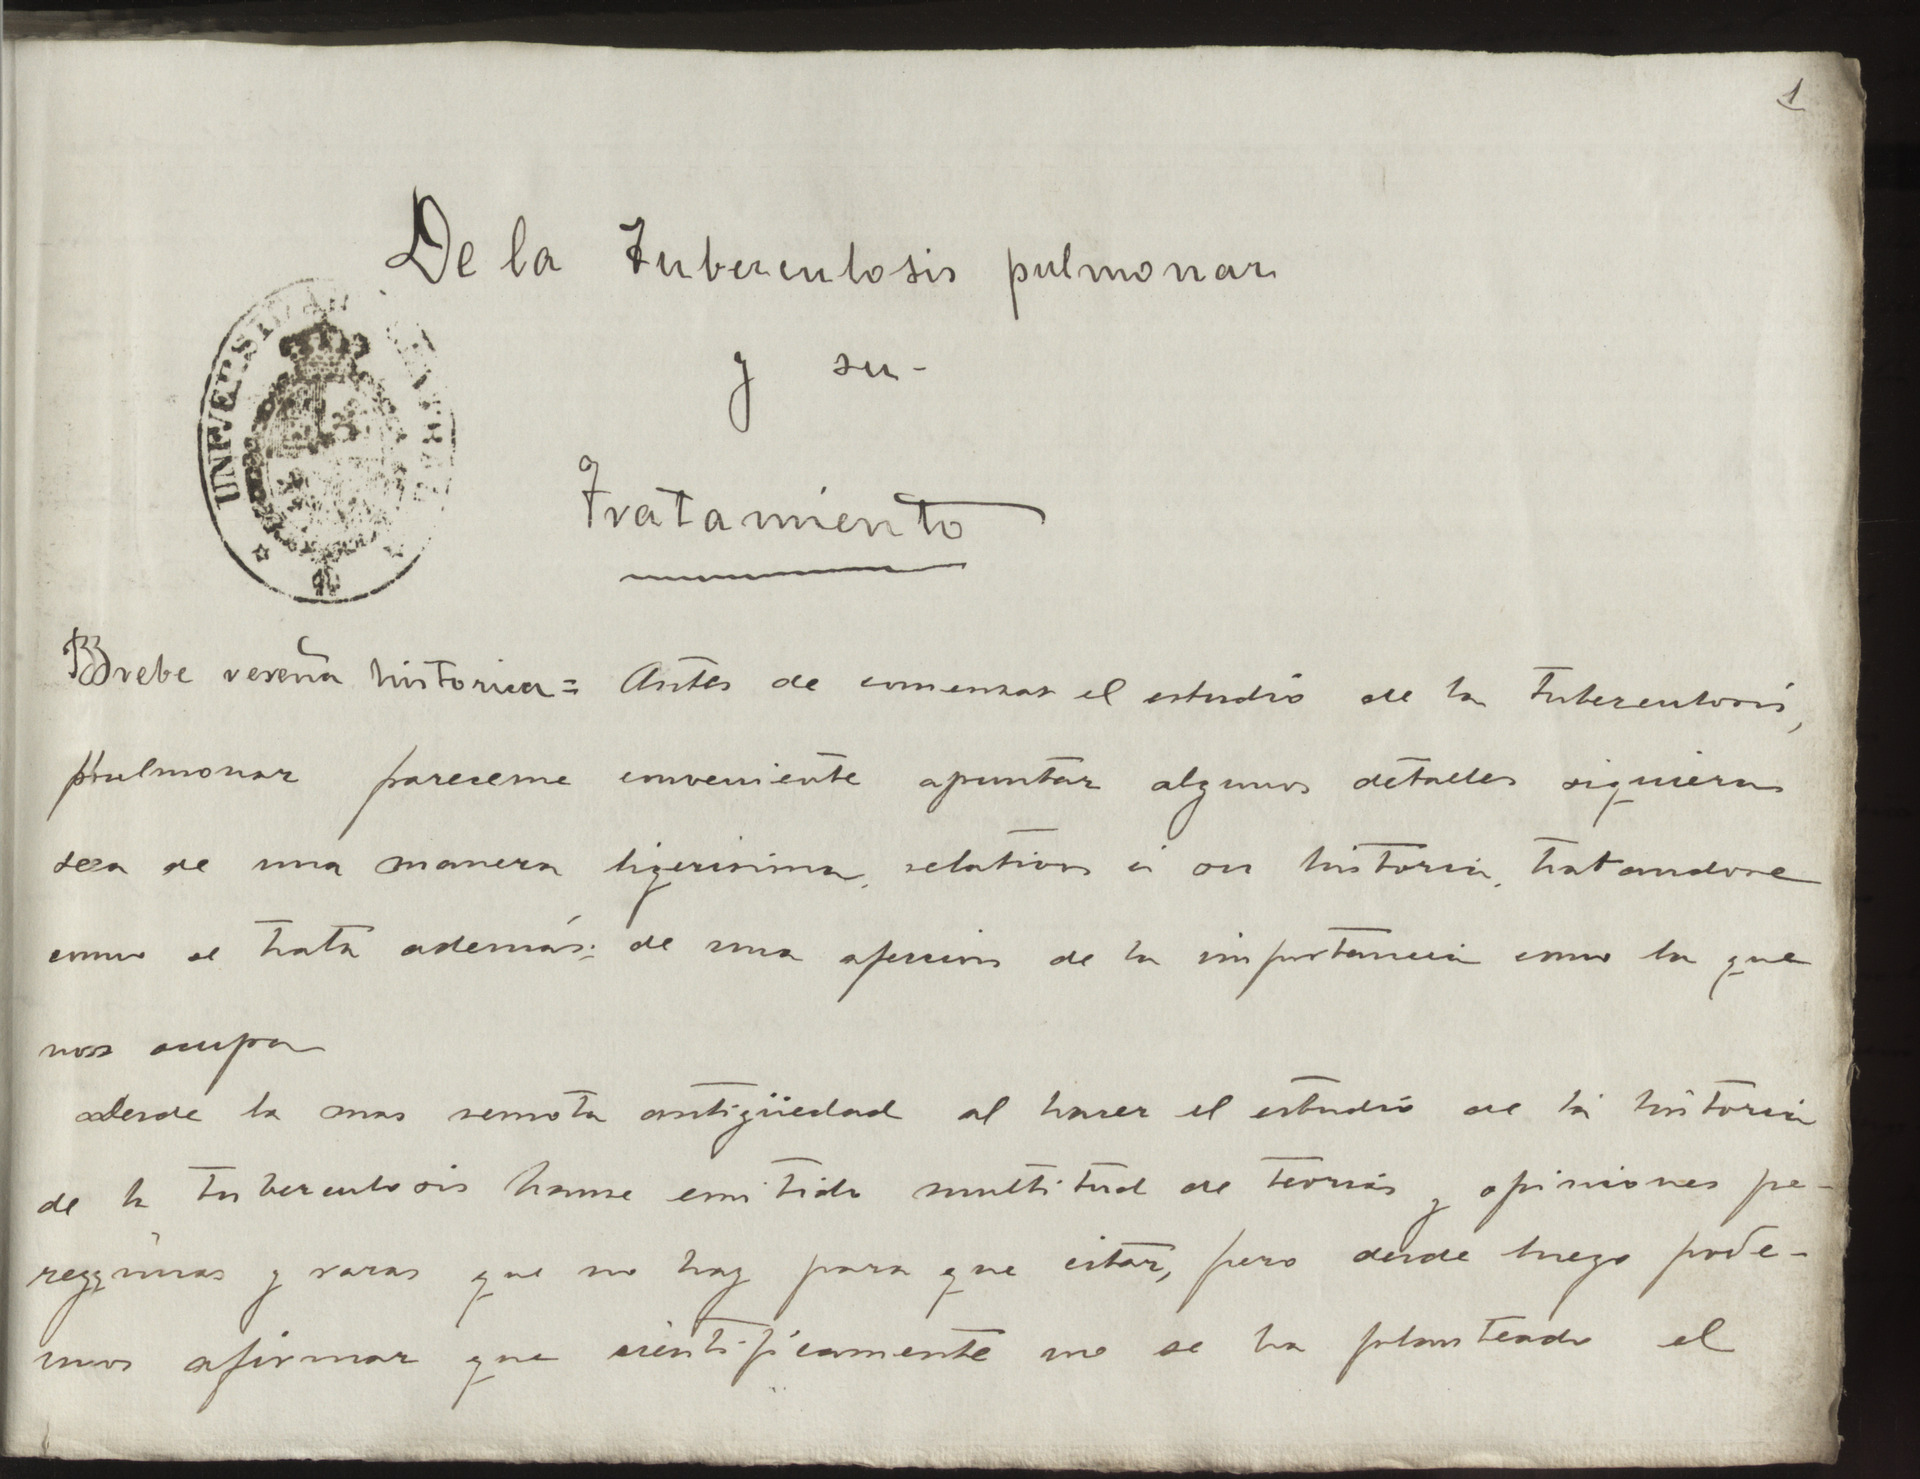 1
De la Tuberculosis pulmonar
y su-
Tratamiento
UNIVERSIDAD
Brebe reseña historica = Antes de comenzar el estudio de la tuberculosis,
pulmonar pareceme conveniente apuntar algunos detalles siquiera
sea de una manera ligerisima, relativos á su historia, tratandose
como se trata además; de una afeccion de la importancia como la que
nos ocupa
Desde la mas remota antigüedad al hacer el estudio de la historia
de la tuberculosis hanse emitido multitud de teorias y opiniones pe-
regrinas y raras que no hay para que citar, pero desde luego pode-
mos afirmar que cientificamente no se ha planteado el